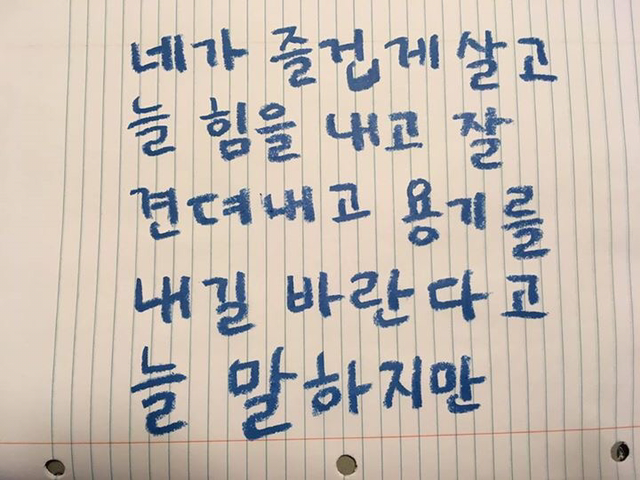 네가 즐겁게 살고
늘 힘을 내고 잘
견뎌내고 용기를
내길 바란다고
늘 말하지만